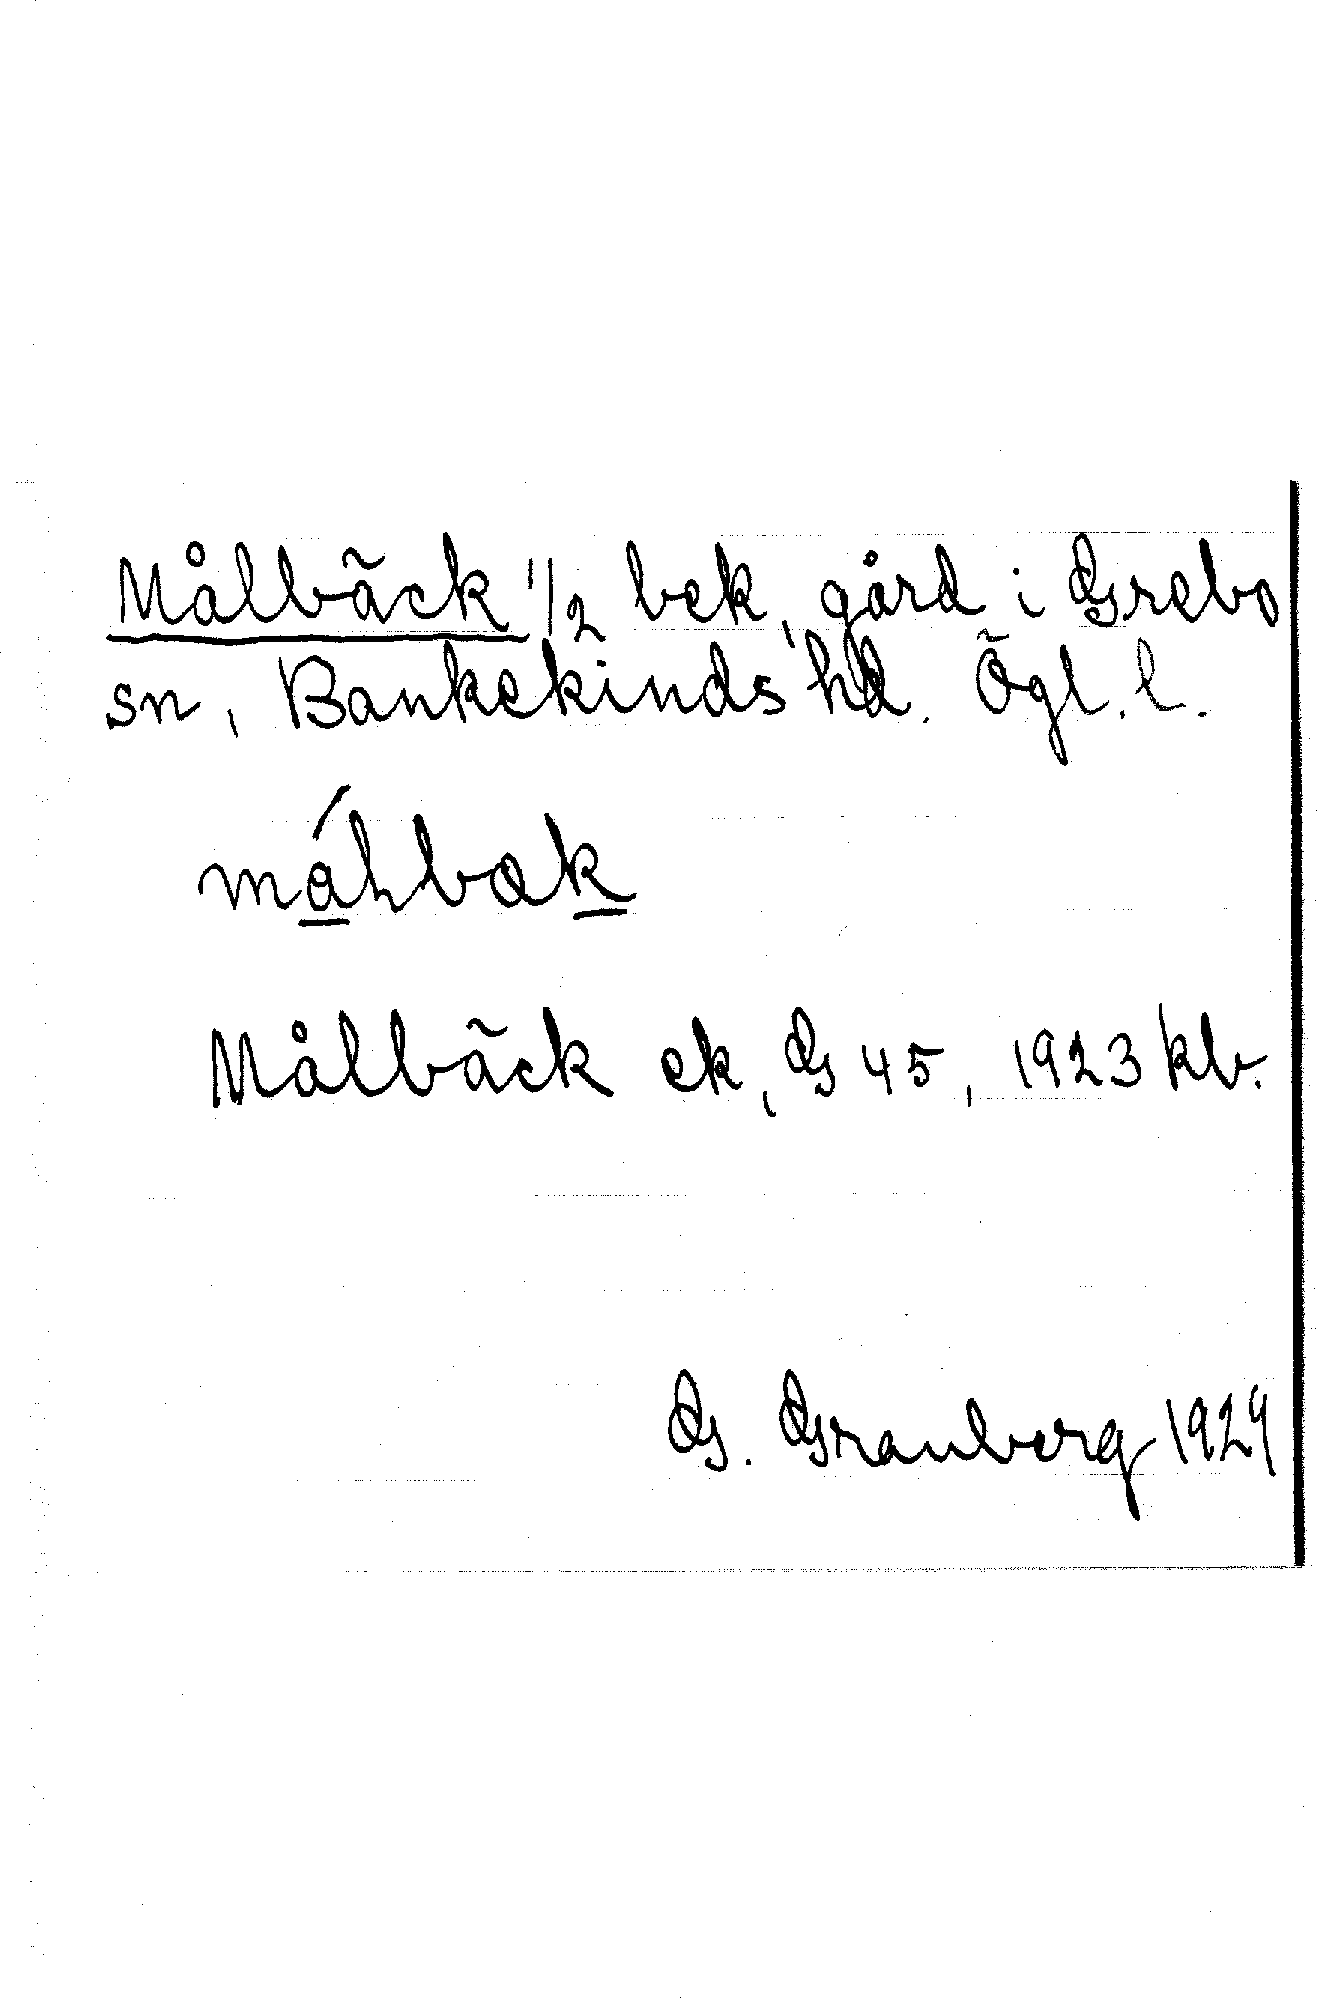 Målbäck 1/2 bek, gård i Grebo
sn, Bankekinds hd. Ögl. l.
målbæk
Målbäck ek, G 45, 1923 kb.
G. Granberg 1929